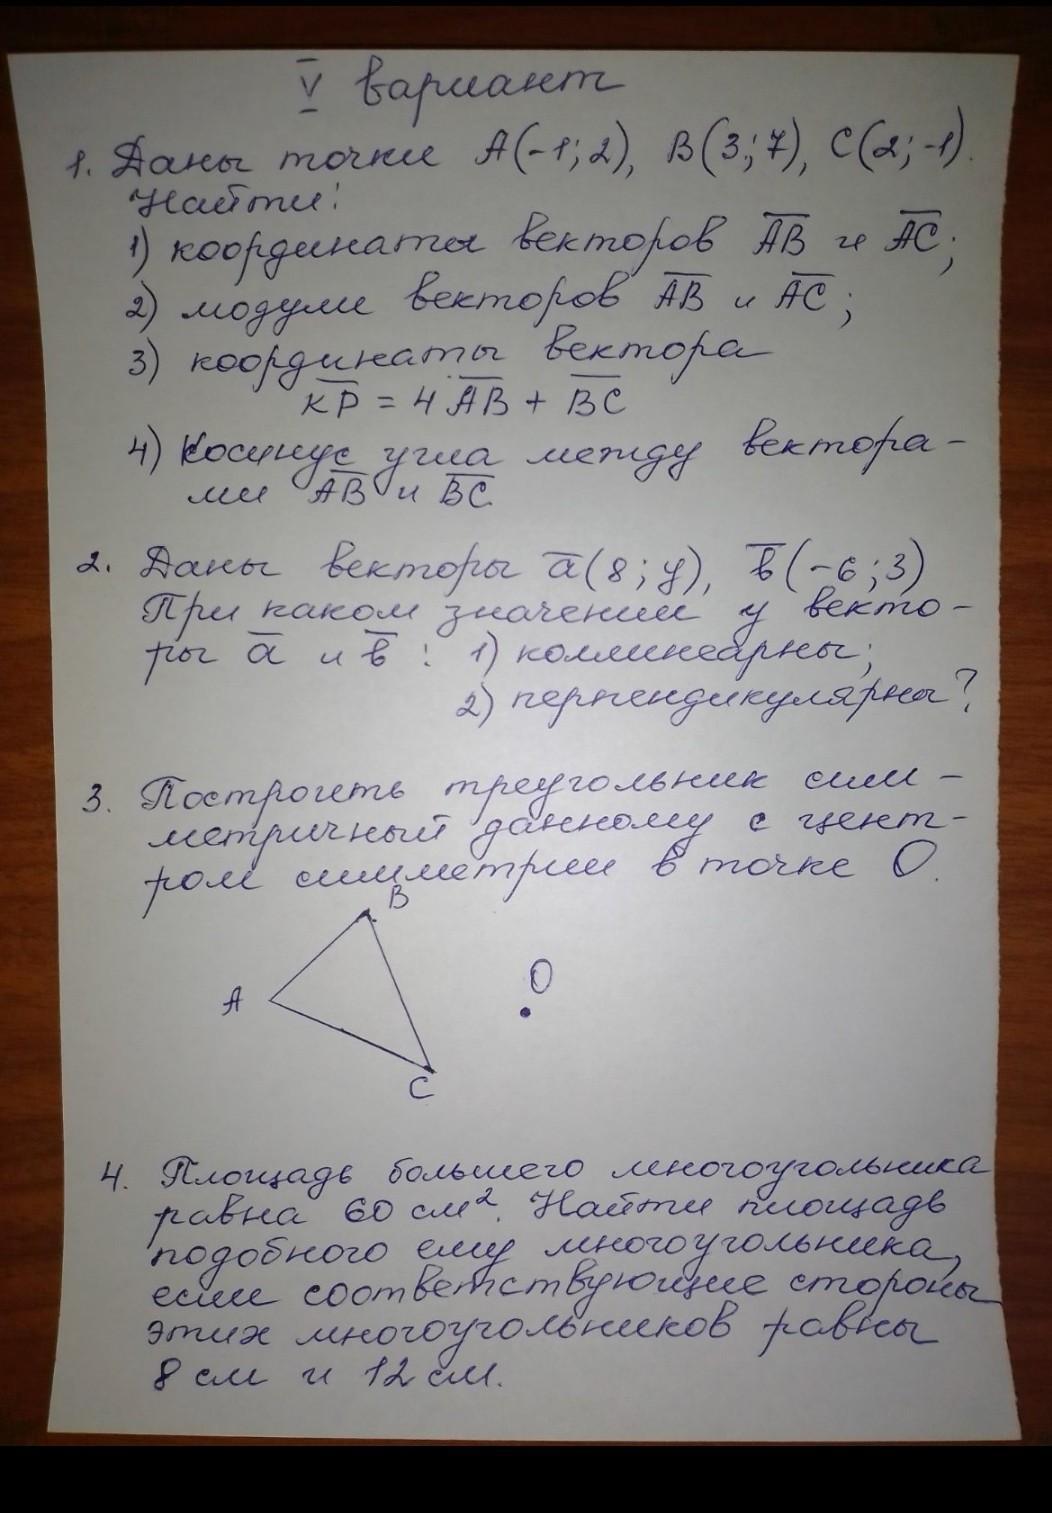 V вариант
1. Даны точки A(-1; 2), B(3; 7), C(2; -1).
Найти:
1) координаты векторов A̅B̅ и A̅C̅;
2) модули векторов A̅B̅ и A̅C̅;
3) координаты вектора
K̅P̅ = 4·A̅B̅ + B̅C̅
4) Косинус угла между вектора-
ми A̅B̅ и B̅C̅.
2. Даны векторы a̅(8; y), b̅(-6; 3)
При каком значении y векто-
ры a̅ и b̅: 1) коллинеарны;
2) перпендикулярны?
3. Построить треугольник сим-
метричный данному с цент-
ром симметрии в точке O.
B
A
O
C
4. Площадь большего многоугольника
равна 60 см². Найти площадь
подобного ему многоугольника,
если соответствующие стороны
этих многоугольников равны
8 см и 12 см.